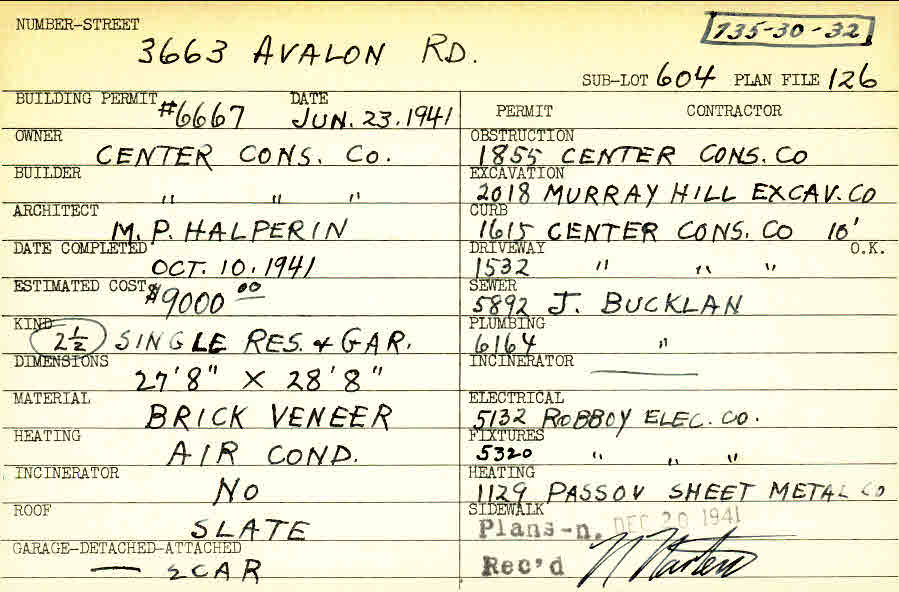 NUMBER-STREET
3663 AVALON RD.
735-30-32
SUB-LOT 604 PLAN FILE 126
BUILDING PERMIT #6667 DATE JUN. 23.1941
PERMIT CONTRACTOR
OWNER CENTER CONS. CO.
OBSTRUCTION 1855 CENTER CONS. CO
BUILDER " " "
EXCAVATION 2018 MURRAY HILL EXCAV. CO
ARCHITECT M. P. HALPERIN
CURB 1615 CENTER CONS. CO 10'
DATE COMPLETED OCT. 10. 1941
DRIVEWAY 1532 " " " O.K.
ESTIMATED COST $9000 00
SEWER 5892 J. BUCKLAN
KIND 2½ SINGLE RES. & GAR.
PLUMBING 6164 "
DIMENSIONS 27'8" X 28'8"
INCINERATOR
MATERIAL BRICK VENEER
ELECTRICAL 5132 ROBBOY ELEC. CO.
HEATING AIR COND.
FIXTURES 5320 " " "
INCINERATOR NO
HEATING 1129 PASSOV SHEET METAL CO
ROOF SLATE
SIDEWALK
Plans-n. DEC 20 1941
GARAGE-DETACHED-ATTACHED
— 2 CAR
Rec'd